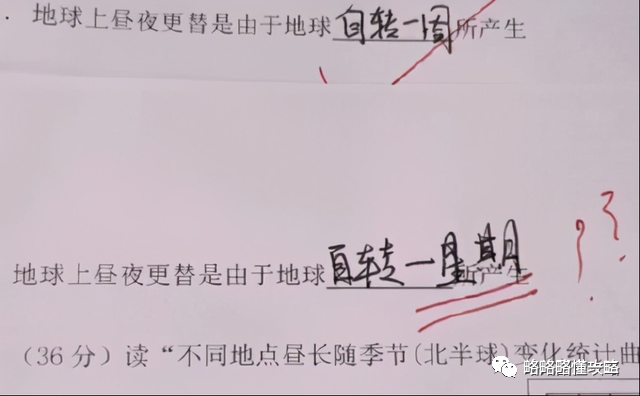 地球上昼夜更替是由于地球自转一周所产生
地球上昼夜更替是由于地球自转一星期所产生
??
(36分)读“不同地点昼长随季节(北半球)变化统计曲
略略略懂攻略